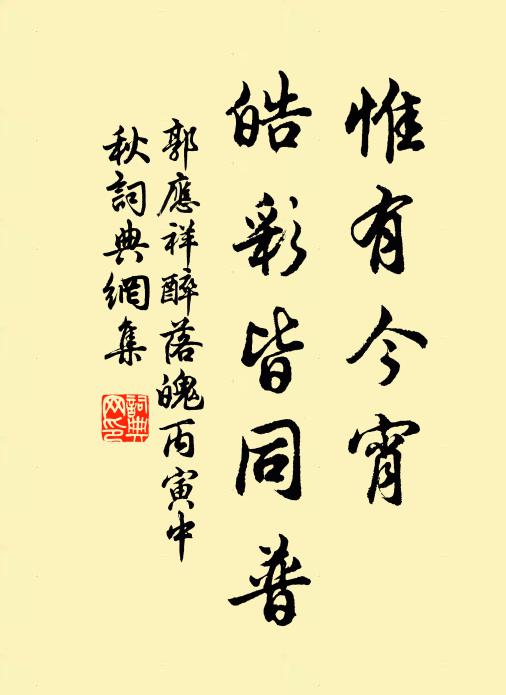 惟有今宵
皓彩皆同普
郭應祥醉落魄丙寅中
秋詞典網集
詞典
网印